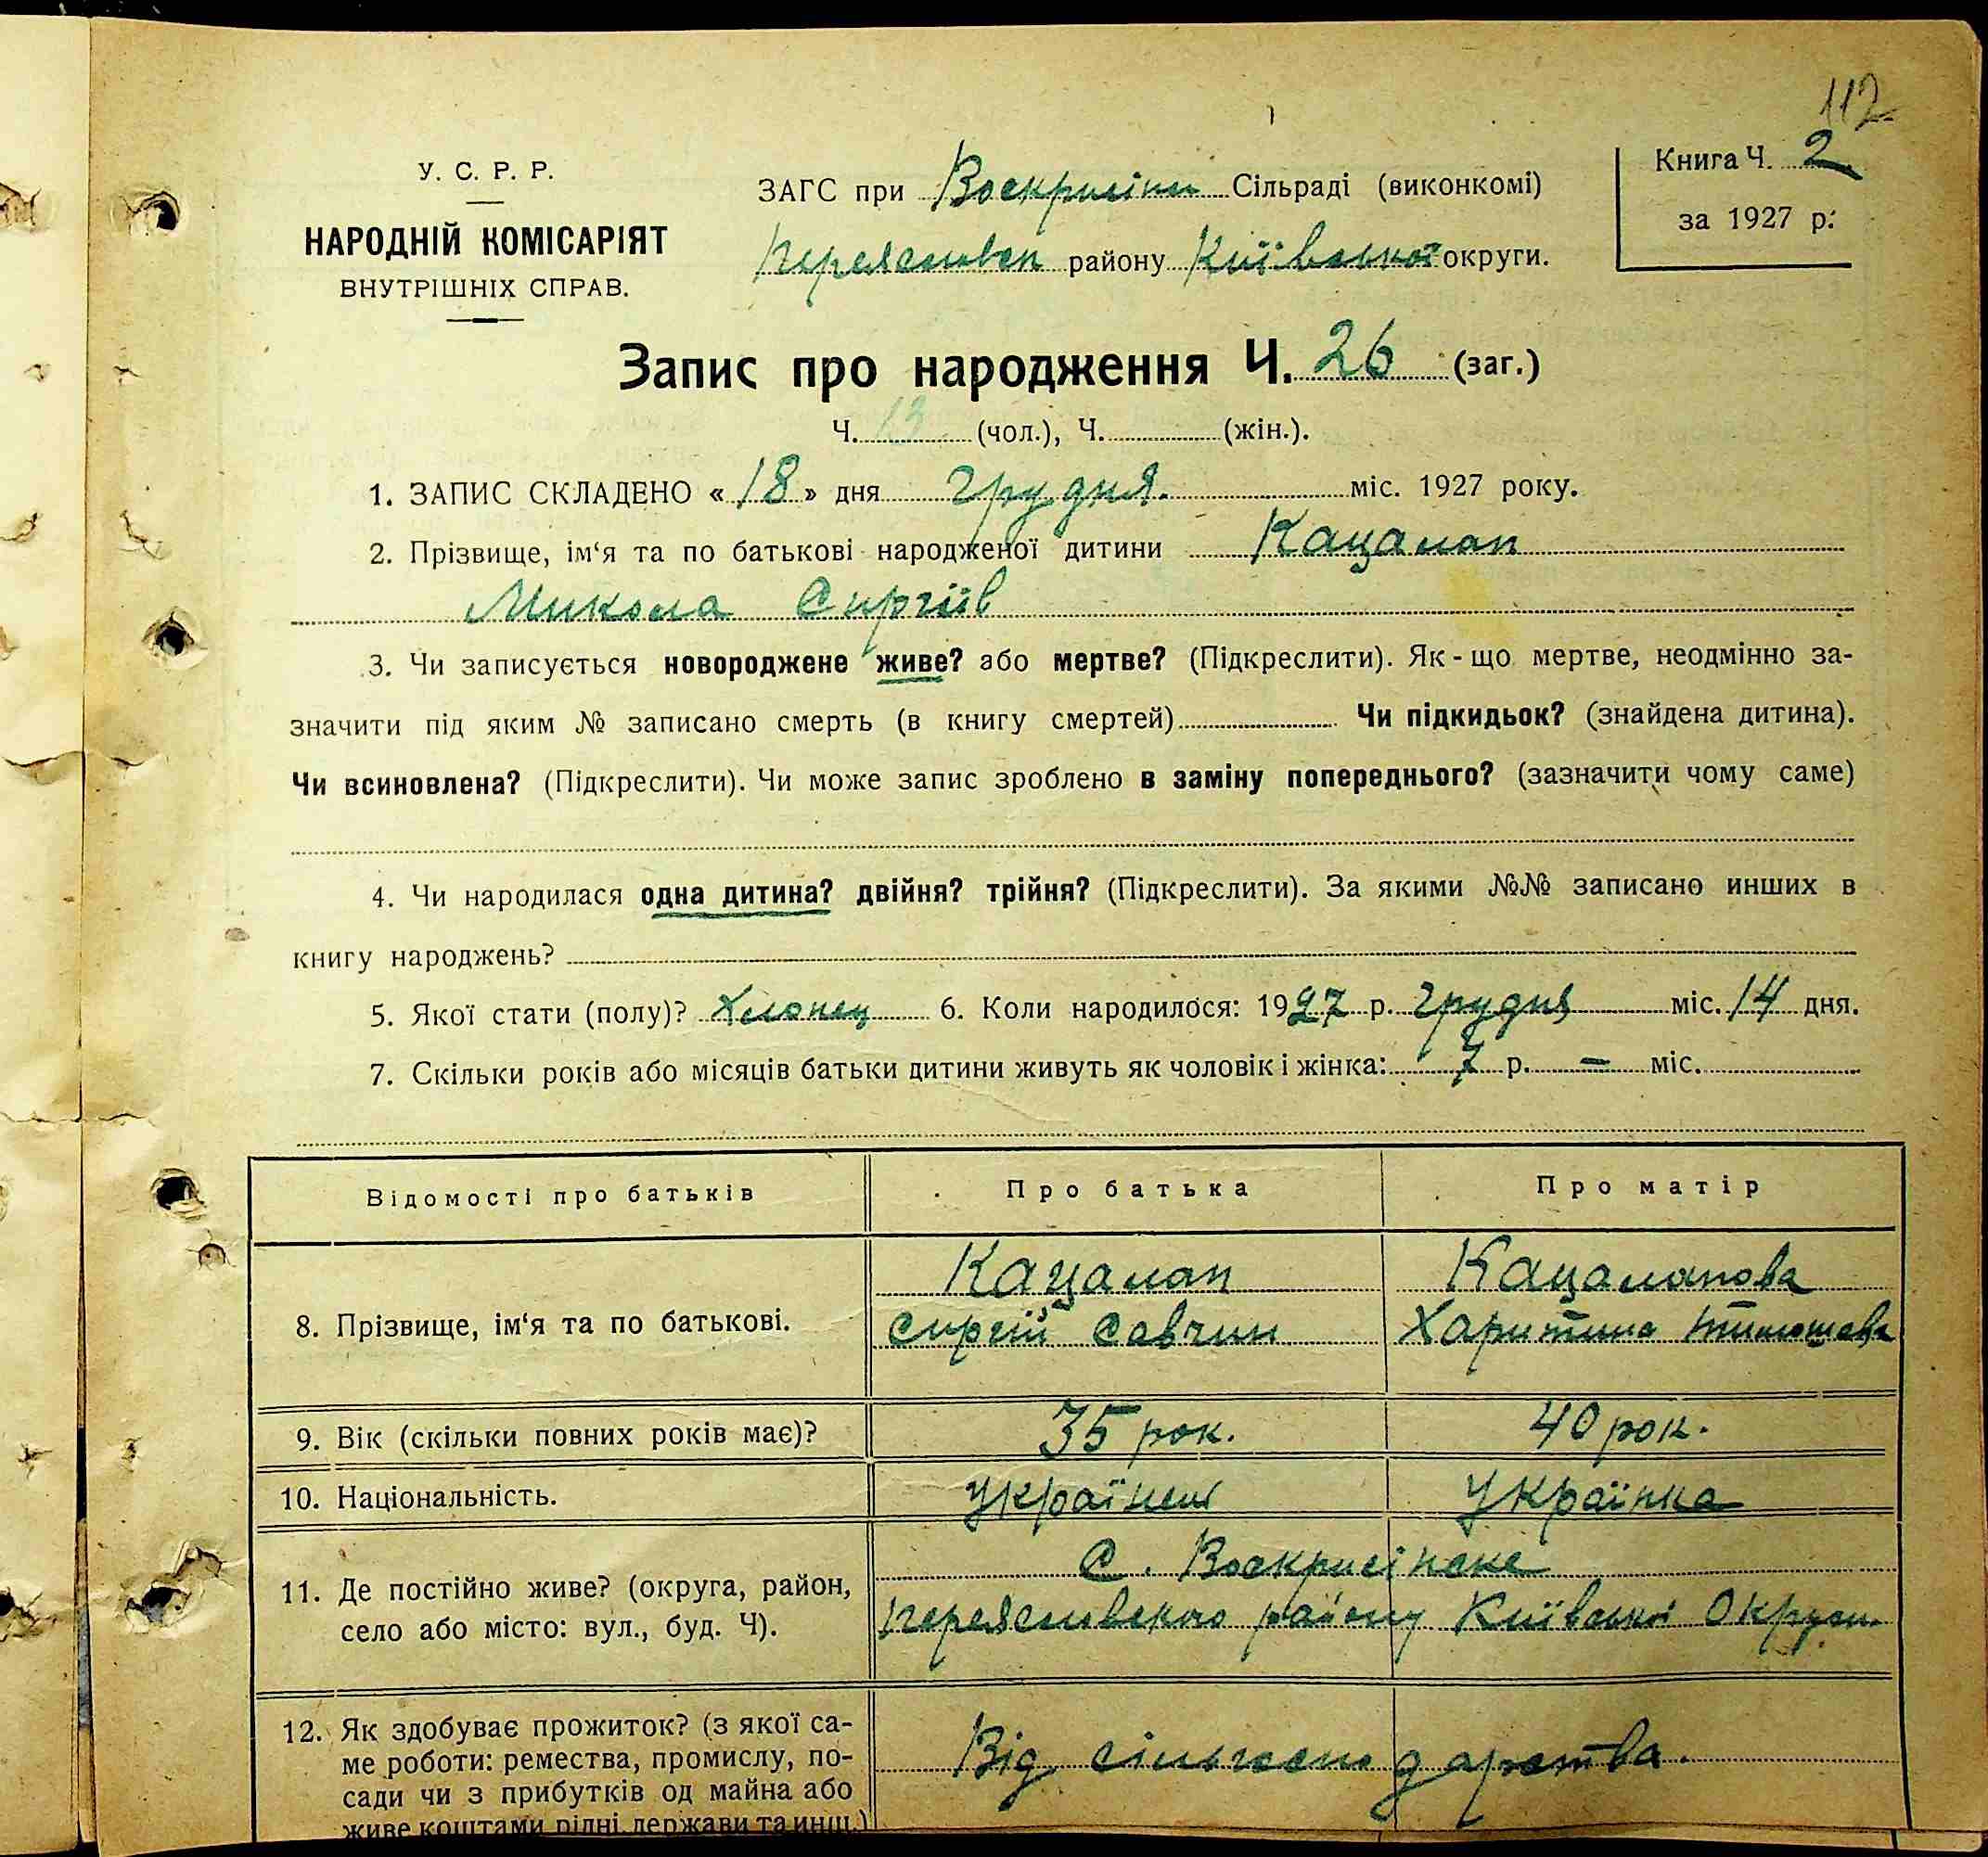 112
У. С. Р. Р.
НАРОДНІЙ КОМІСАРІЯТ
ВНУТРІШНІХ СПРАВ.
ЗАГС при Воскрисінск Сільраді (виконкомі)
Переяславск району Київської округи.
Книга Ч. 2
за 1927 р.
Запис про народження Ч. 26 (заг.)
Ч. 13 (чол.), Ч. (жін.).
1. ЗАПИС СКЛАДЕНО « 18 » дня грудня. міс. 1927 року.
2. Прізвище, ім‘я та по батькові народженої дитини Кацалап
Микола Сиргіїв
3. Чи записується новороджене живе? або мертве? (Підкреслити). Як-що мертве, неодмінно за-
значити під яким № записано смерть (в книгу смертей) Чи підкидьок? (знайдена дитина).
Чи всиновлена? (Підкреслити). Чи може запис зроблено в заміну попереднього? (зазначити чому саме)
4. Чи народилася одна дитина? двійня? трійня? (Підкреслити). За якими №№ записано инших в
книгу народжень?
5. Якої стати (полу)? Хлопец 6. Коли народилося: 1927 р. грудня міс. 14 дня.
7. Скільки років або місяців батьки дитини живуть як чоловік і жінка: 7 р. — міс.
Відомості про батьків Про батька Про матір
8. Прізвище, ім‘я та по батькові.
Кацалап
Сиргій Савчин
Кацалапова
Харитина Тимошева
9. Вік (скільки повних років має)? 35 рок. 40 рок.
10. Національність. Українец Українка
11. Де постійно живе? (округа, район,
село або місто: вул., буд. Ч).
С. Воскрисінске
Переяславского району Київської Округи
12. Як здобуває прожиток? (з якої са-
ме роботи: ремества, промислу, по-
сади чи з прибутків од майна або
живе коштами рідні, держави та инш.)
Від сільгосподарства.